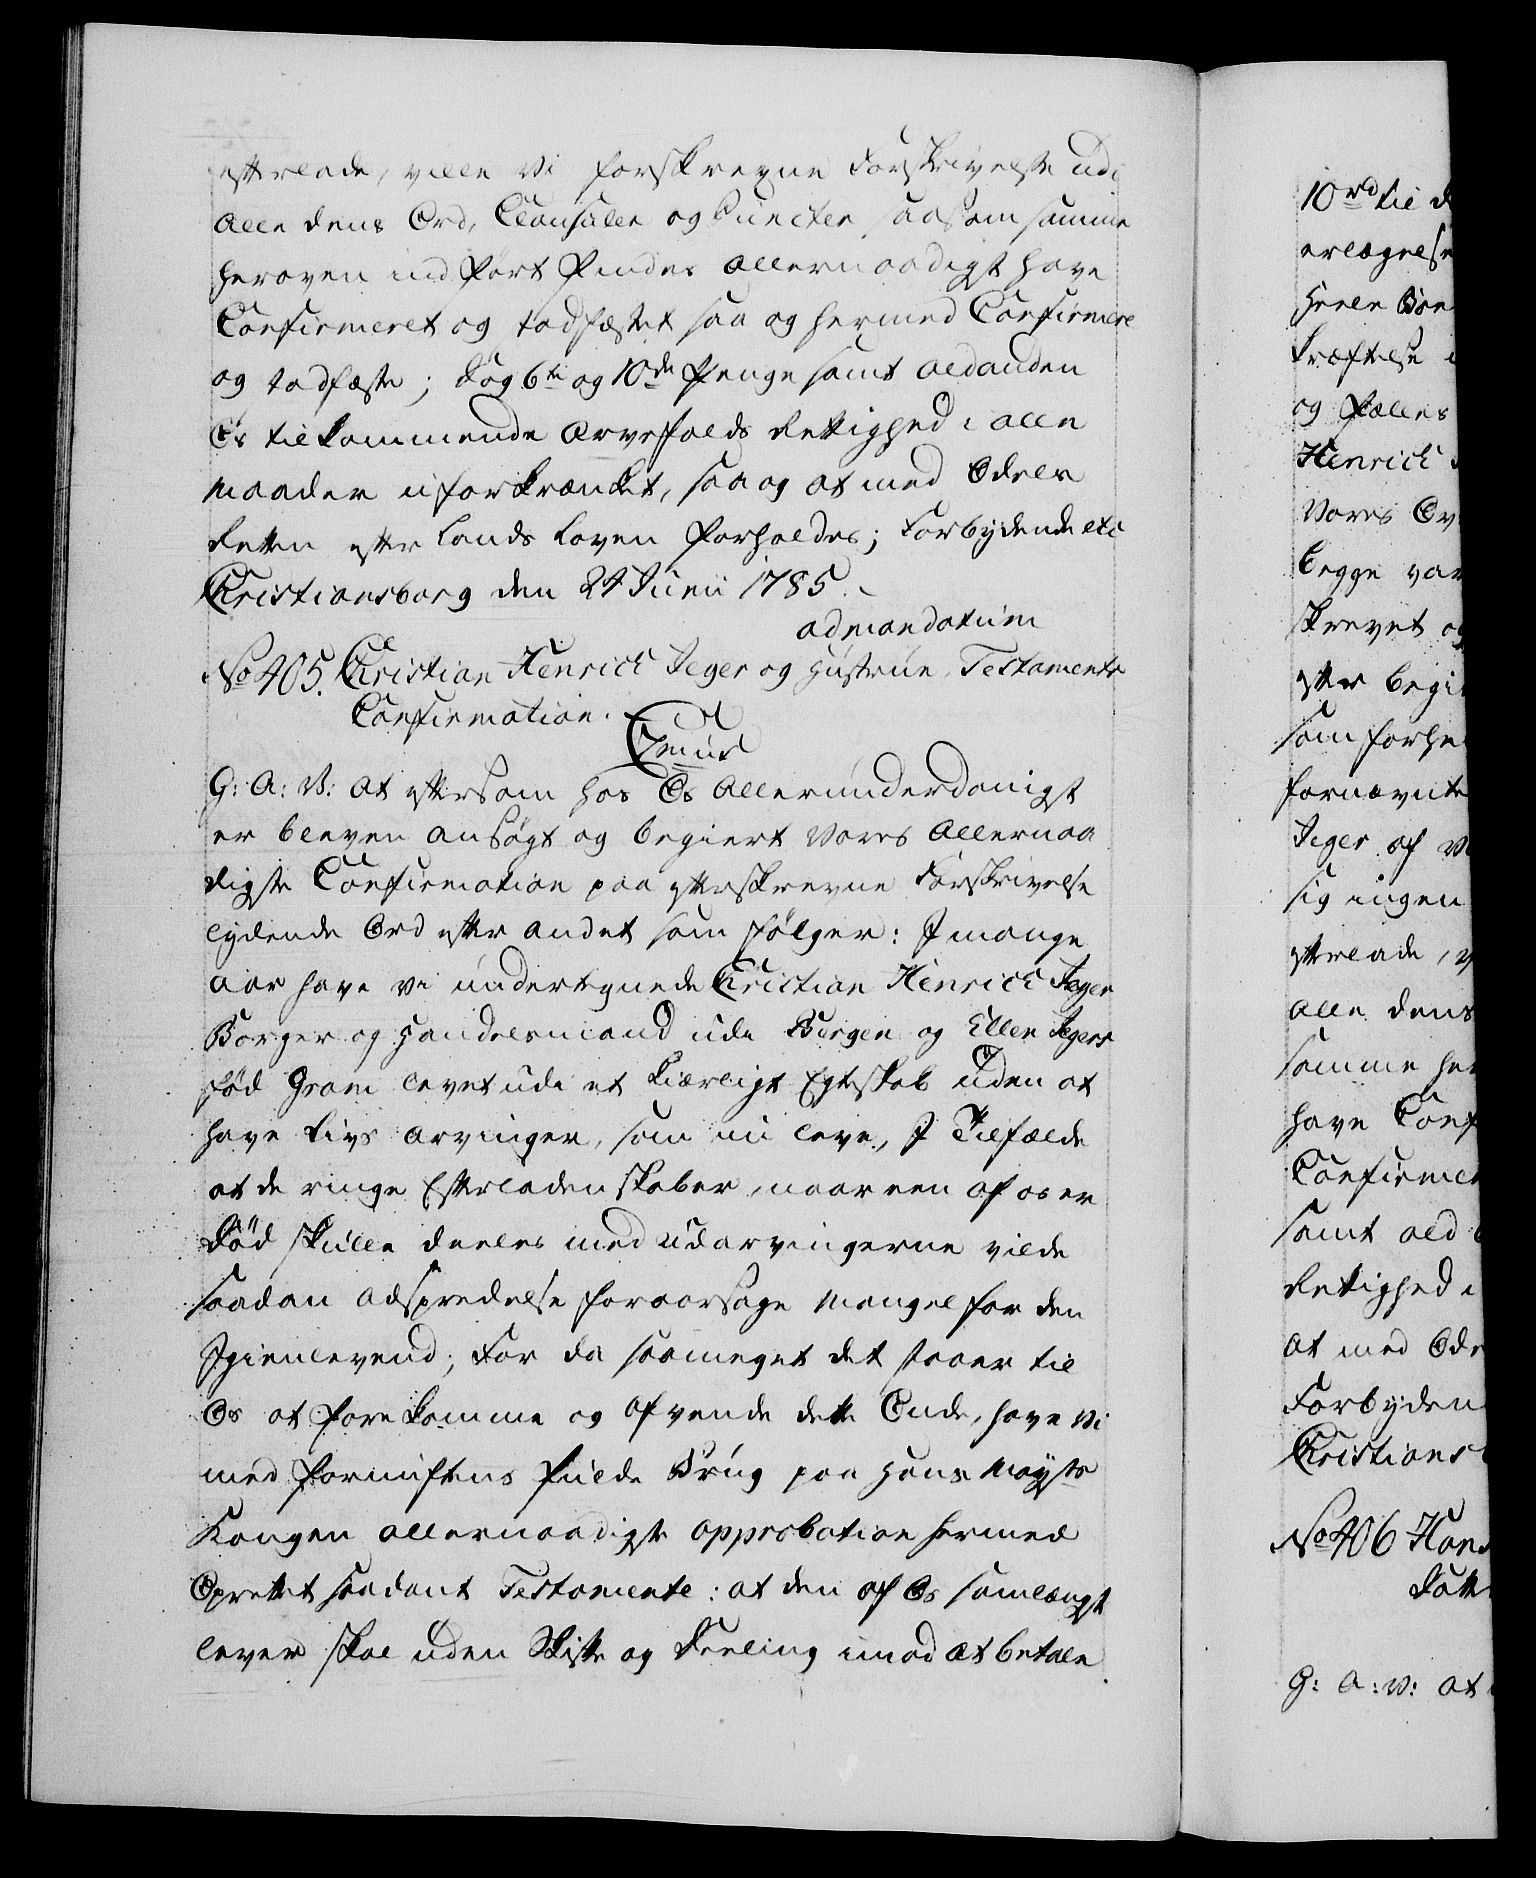 efterlade, ville Vi forskrevne Forskrivelse udi
alle dens Ord, Clausuler og Puncter saasom samme
heroven indført findes allernaadigst have
Confirmeret og stadfæstet saa og hermed Confirmere
og stadfæste; Dog 6te og 10de Penge samt ald anden
Os tilkommende Arvefalds Rettighed i alle
maader uforkrænket, saa og at med Odels
Retten efter Lands Loven forholdes; Forbydende etc
Christiansborg den 24 Junii 1785.
ad mandatum
No 405. Christian Henrich Jeger og Hustrue Testaments
Confirmation.
C 7mus
G: A: V: at eftersom hos Os Allerunderdanigst
er bleven ansøgt og begiert Vores Allernaa
digste Confirmation paa efterskrevne Forskrivelse
lydende Ord efter andet som følger: J mange
aar have vi undertegnede Christian Henrich Jeger
Borger og Handelsmand udi Bergen og Ellen Jegers
fød Gram levet udi et kiærligt Egteskab uden at
have Livs Arvinger, som nu leve, J Tilfælde
at de ringe Efterladenskaber, naar een af os er
Død skulle deeles med Udarvingerne vilde
saadan adspredelse foraarsage Mangel for den
Igienlevend; For da saameget det staaer til
Os at forekomme og afvende dette Onde, have Vi
med fornuftens fulde Brug paa Hans Mayts
Kongen allernaadigste approbation hermed
Oprettet saadant Testamente: at den af Os som længst
lever skal uden Skifte og Deeling imod at betale
10rd til d
erlægelse
Heele Boe
kræftelse
og fælles
Henrich
Vores Ov
begge var
skrevet og
efter begi
som forhe
fornævnte
Jeger af V
sig ingen
efterlade, v
alle dens
samme her
have Conf
Confirmer
samt ald
Rettighed i
at med Ode
Forbyden
Christians
No 406 Hans
Datt
G: A: V: at